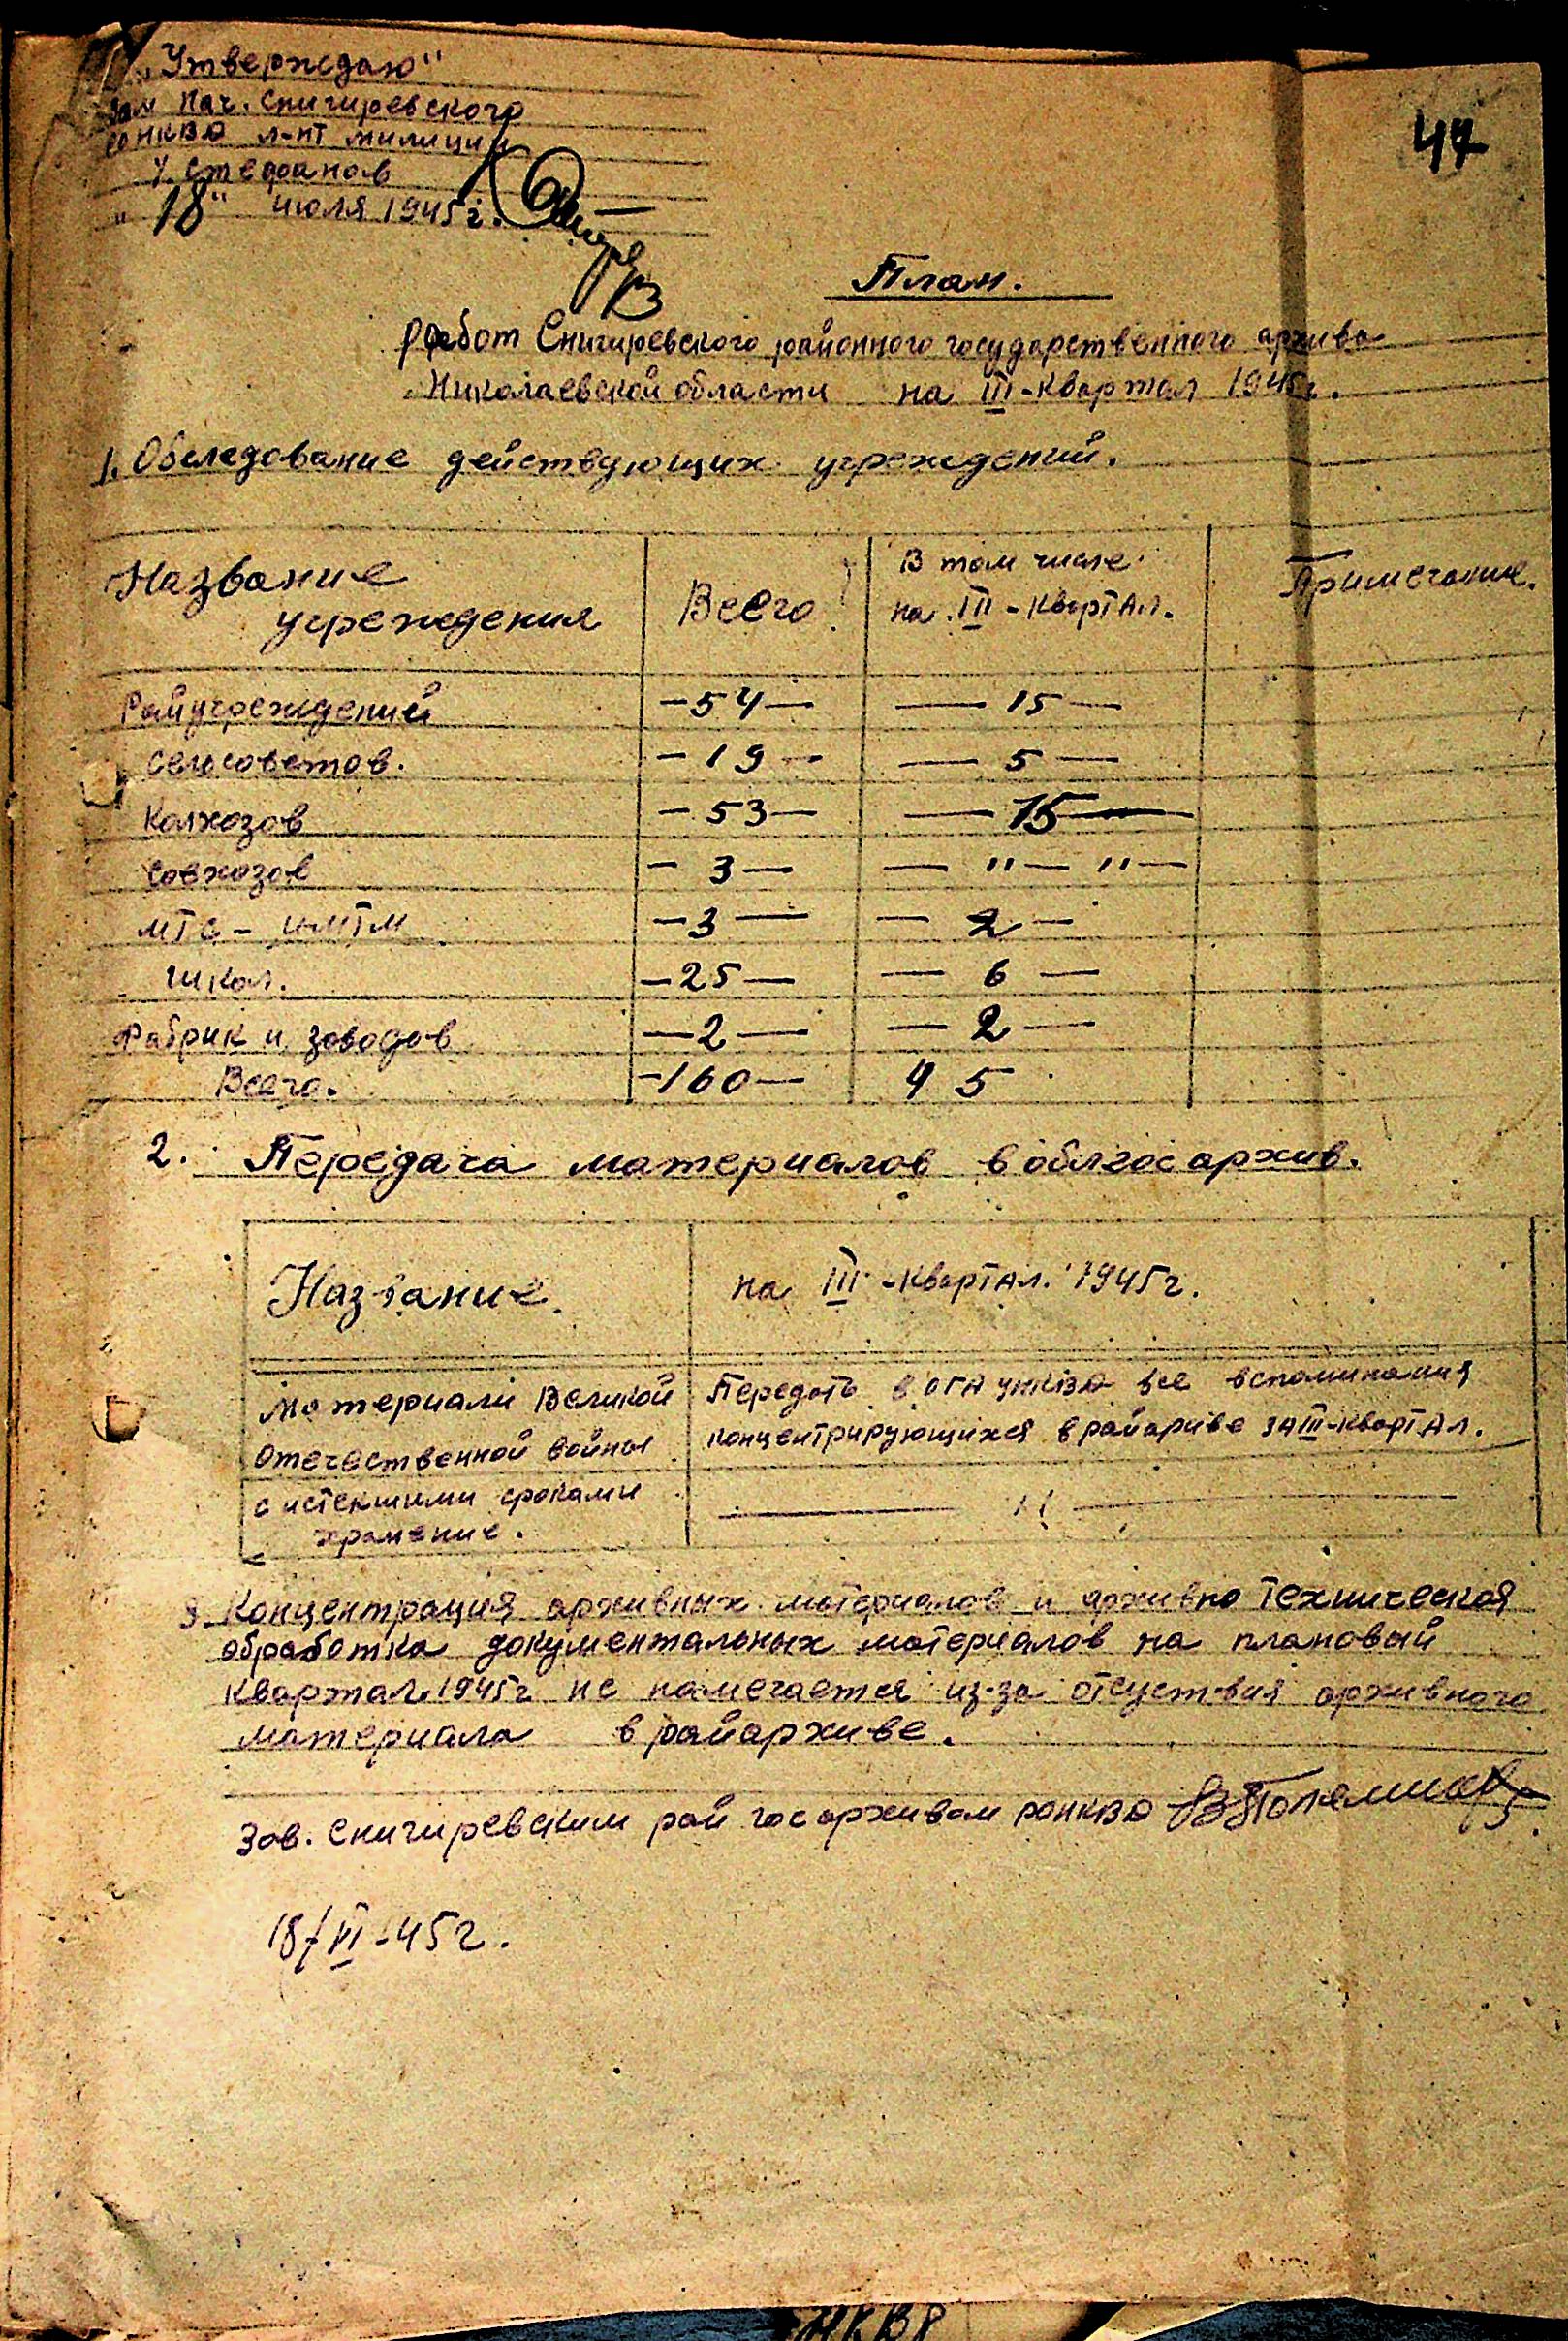 „Утверждаю"
47
Зам Нач. Снигиревского
РО НКВД л-нт милиции
У. Стефанов
„18" июля 1945 г.
План.
работ Снигиревского районного государственного архива
Николаевской области на III-Квартал 1945г.
1. Обследование действующих учреждений.
Название учреждения
Всего
В том числе на III-КвартАл.
Примечание.
Райучреждений —54— —15—
сельсоветов. —19— —5—
Колхозов —53— —15—
Совхозов —3— — " — " —
МТС — и МТМ —3— —2—
школ. —25— —6—
Фабрик и заводов —2— —2—
Всего. —160— 45
2. Передача материалов в облгосархив.
Название.
на III-КвартАл. 1945г.
Материали Великой
Отечественной войны
Передать в ОГА УНКВД все вспоминания
концентрирующихся в райариве зА III-КвартАл.
с истекшими сроками
хранение.
— " —
3. Концентрация архивных материалов и архивно техническая
обработка документальных материалов на плановый
квартал 1945г не намечается из-за отсуствия архивного
материала в райархиве.
Зав. Снигиревским рай госархивом РОНКВД
18/VI-45г.
НКВД